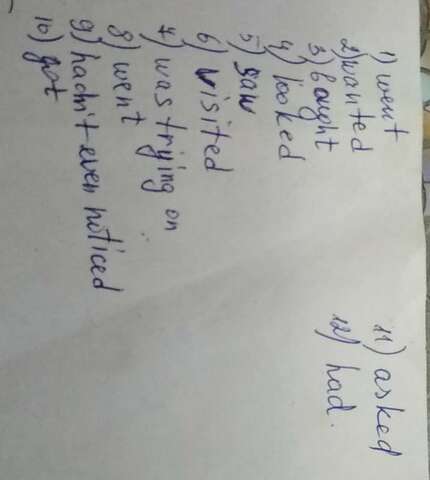 1) went
2) wanted
3) bought
4) looked
5) saw
6) visited
7) was trying on
8) went
9) hadn't even noticed
10) got
11) asked
12) had.